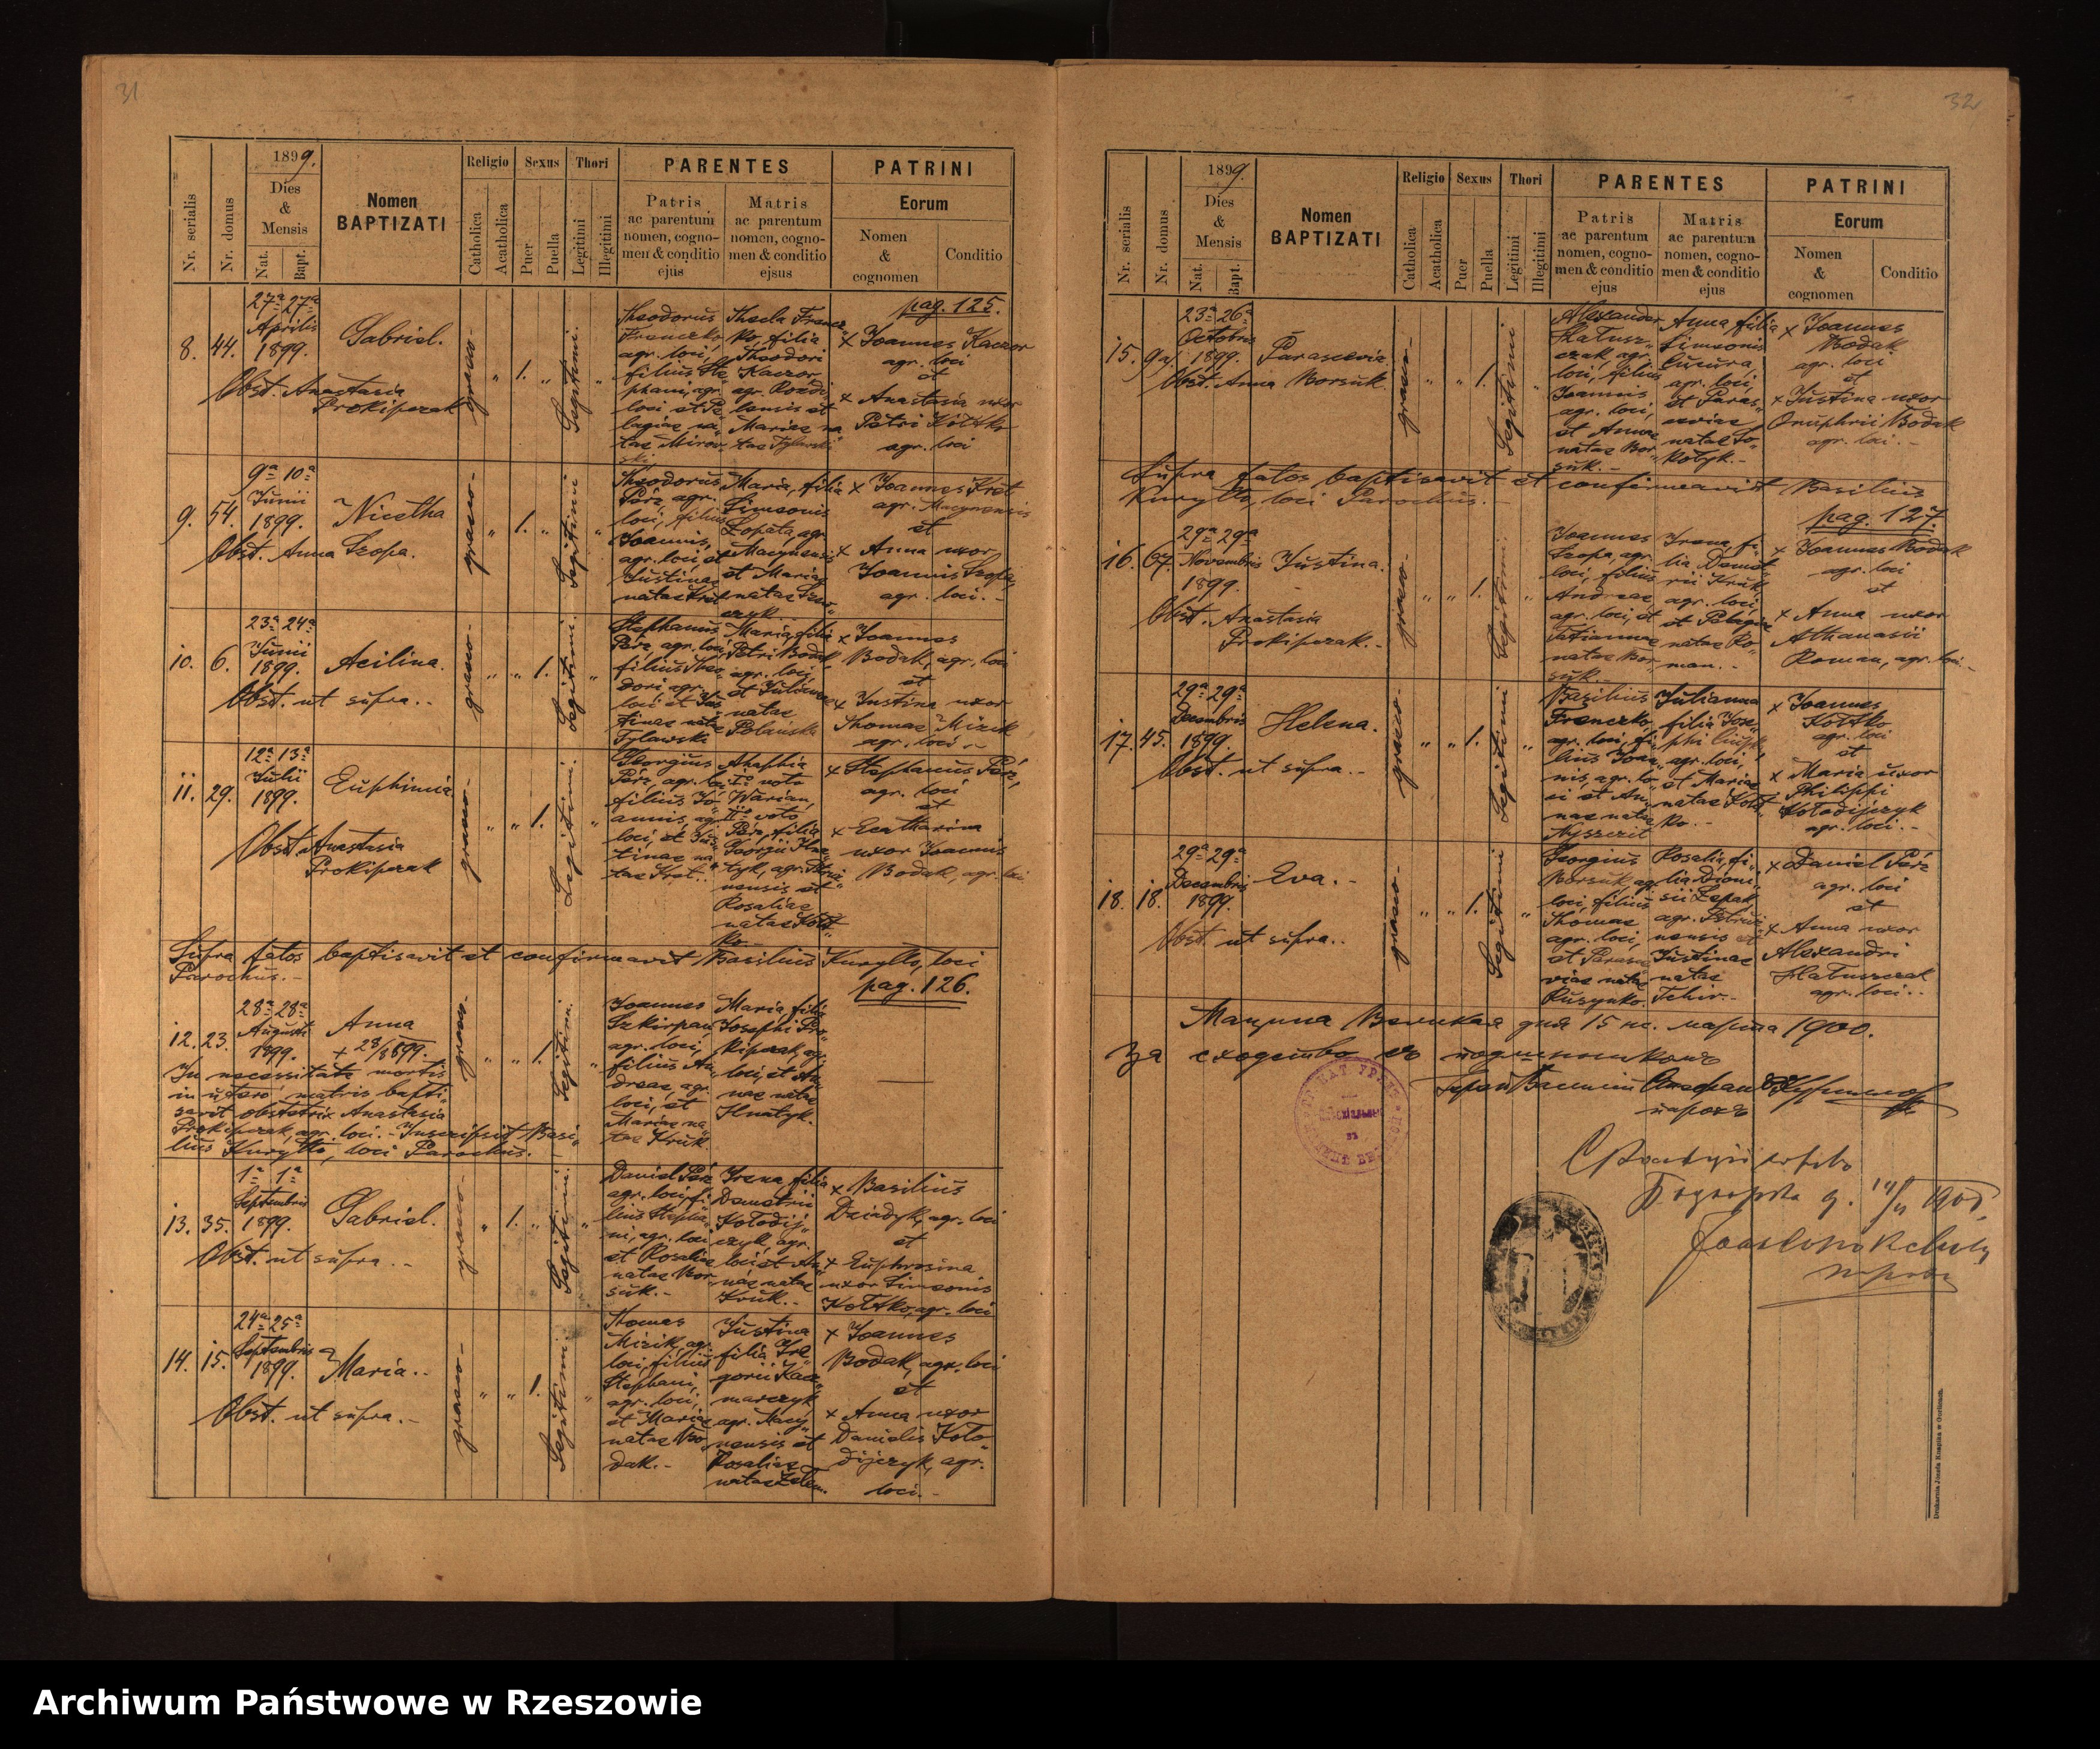 31
1899.
Nr. serialis
Nr. domus
Dies
&
Mensis
Nat.
Bapt.
Nomen
BAPTIZATI
Religio
Catholica
Acatholica
Sexus
Puer
Puella
Thori
Legitimi
Illegitimi
PARENTES
Patris
ac parentum
nomen, cogno-
men & conditio
ejus
Matris
ac parentum
nomen, cogno-
men & conditio
ejsus
PATRINI
Eorum
Nomen
&
cognomen
Conditio
pag. 125.
8. 44.
27ª 27ª
Aprilis
1899.
Gabriel.
Obst. Anastasia
Prokipczak
graeco-
1.
Legitimi
Theodorus
Franczko
agr. loci,
filius Ste
phani, agr.
loci et Pe
lagiae na
tae Mirow
ski
Thecla Francz
ko, filia
Theodori
Kaczor,
agr.
lensis et
Mariae na
tae Tylawski
x Joannes Kaczor
agr. loci
et
x Anastasia uxor
Petri Kottko
agr. loci
9. 54.
9ª 10ª
Junii
1899.
Nicetha
Obst. Anna Szopa.
graeco-
1.
Legitimi
Theodorus
Pérz agr.
loci, filius
Joannis,
agr. loci et
Justinae
natae Kret
Maria, filia
Simeonis
Łopata, agr.
Macynensis
et Mariae
natae Szew
czyk
x Joannes Kret
agr. Macynensis
et
x Anna uxor
Joannis Szopa,
agr. loci.-
10. 6.
23ª 24ª
Junii
1899.
Acilina.
Obst. ut supra.-
graeco-
1.
Legitimi.
Stephanus
Pérz, agr. loci,
filius Theo
dori agr.
loci et Jus
tinae natae
Tylawski
Maria, filia
Petri Bodak,
agr. loci,
et Julianna
natae
Polański
x Joannes
Bodak, agr. loci
et
x Justina uxor
Thomae Mizik
agr. loci.-
11. 29.
12ª 13ª
Julii
1899.
Euphimia
Obst. Anastasia
Prokipczak
graeco-
1.
Legitimi.
Georgius
Pérz, agr. loci
filius Jo
annis, agr.
loci, et Jus
tinae na
tae Kret.
Ahaphia
Iº voto
Warian,
IIº voto
Pérz, filia
Georgii Hna
tyk, agr.
nensis et
Rosaliae
natae Kott
ko.-
x Stephanus Pérz,
agr. loci
et
x Ecatharina
uxor Joannis
Bodak, agr. loci
Supra fatos baptisavit et confirmavit Basilius Kuryłło, loci
Parochus.-
pag. 126.
12. 23.
28ª 28ª
Augusti
1899.
Anna
+ 28/8 899.
In necessitate mortis
in utero matris bapti-
savit obstetrix Anastasia
Prokipczak, agr. loci.- Inscripsit Basi
lius Kuryłło, loci Parochus.
graeco-
1.
Legitimi.
Joannes
Szkirpan
agr. loci,
filius An
dreae, agr.
loci, et
Mariae na
tae Kruk
Maria, filia
Josephi Pro
kipczak, agr.
loci, et An
nae natae
Hnatyk.
13. 35.
1ª 1ª
Septembris
1899.
Gabriel.
Obst. ut supra.-
graeco-
1.
Legitimi.
Daniel Pérz
agr. loci, fi
lius Stepha
ni, agr. loci
et Rosaliae
natae Bor
suk.-
Irena, filia
Demetrii
Kołodij
czyk, agr.
loci et An
nae natae
Kruk.-
x Basilius
Dziadyk, agr. loci
et
x Euphrosina
uxor Simeonis
Kottko, agr. loci
14. 15.
24ª 25ª
Septembris
1899.
Maria.-
Obst. ut supra.-
graeco-
1.
Legitimi.
Thomas
Mizik, agr.
loci, filius
Stephani,
agr. loci,
et Mariae
natae Bo
dak.-
Justina
filia Gre
gorii Kacz
marczyk
agr. Macy
nensis et
Rosaliae
natae
x Joannes
Bodak, agr. loci
et
x Anna uxor
Danielis Koło
dijczyk, agr.
loci.-
32
1899.
Nr. serialis
Nr. domus
Dies
&
Mensis
Nat.
Bapt.
Nomen
BAPTIZATI
Religio
Catholica
Acatholica
Sexus
Puer
Puella
Thori
Legitimi
Illegitimi
PARENTES
Patris
ac parentum
nomen, cogno-
men & conditio
ejus
Matris
ac parentum
nomen, cogno-
men & conditio
ejus
PATRINI
Eorum
Nomen
&
cognomen
Conditio
15. 9a
23ª 26ª
Octobris
1899.
Parascevia
Obst. Anna Borsuk.
graeco-
1.
Legitimi
Alexander
Hałusz
czak, agr.
loci, filius
Joannis
agr. loci,
et Annae
natae Bor
suk.-
Anna, filia
Simeonis
Cucura,
agr. loci,
et Paras
ceviae
natae So
kotyk.-
x Joannes
Bodak
agr. loci
et
x Justina uxor
Onuphrii Bodak
agr. loci.-
Supra fatos baptisavit et confirmavit Basilius
Kuryłło, loci Parochus.
pag. 127.
16. 67.
29ª 29ª
Novembris
1899.
Justina.
Obst. Anastasia
Prokipczak.-
graeco-
1.
Legitimi.
Joannes
Szopa, agr.
loci, filius
Andreae
agr. loci, et
Tatiannae
natae Bor
suk.-
Irena, fi
lia Demet
rii Kruk
agr. loci,
et Pelagiae
natae Ro
man.-
x Joannes Bodak
agr. loci
et
x Anna uxor
Athanasii
Roman, agr. loci.-
17. 45.
29ª 29ª
Decembris
1899.
Helena.
Obst. ut supra.-
graeco-
1.
Legitimi
Basilius
Franczko,
agr. loci, fi
lius Joan
nis, agr. lo
ci et An
nae natae
Nyszczit
Julianna
filia Jose
phi
agr. loci,
et Mariae
natae Kott
ko.-
x Joannes
Kottko
agr. loci
et
x Maria uxor
Philippi
Kołodijczyk
agr. loci.-
18. 18.
29ª 29ª
Decembris
1899.
Eva.-
Obst. ut supra.-
graeco-
1.
Legitimi
Georgius
Borsuk agr.
loci, filius
Thomae
agr. loci,
et Parasce
viae natae
Rusynko.
Rosalia, fi
lia Dioni
sii Żepak
agr. Petrus
nensis et
Justinae
natae
Fehir.-
x Daniel Pérz
agr. loci
et
x Anna uxor
Alexandri
Hałuszczak
agr. loci.-
Мацина Велика дня 15 марта 1900.
За сходство съ подлинникомъ
парохъ
Drukarnia Józefa Knapika w Gorlicach.
Archiwum Państwowe w Rzeszowie